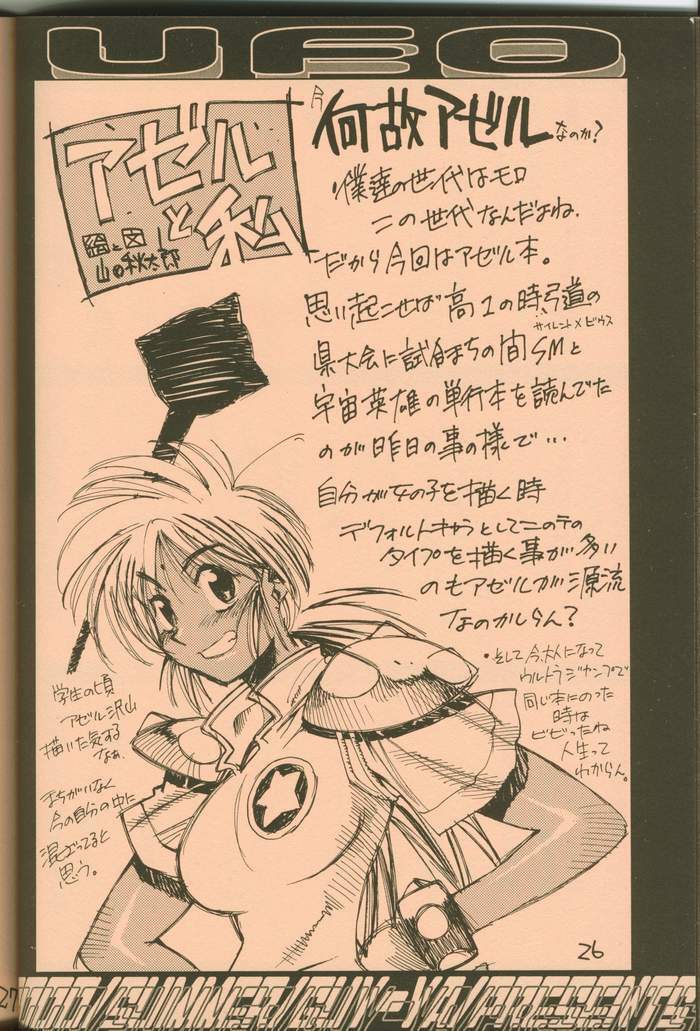 UFO
アゼル
と私
絵と図
山の秋太郎
何故アゼルなのか?
僕達の世代はモロ
この世代なんだよね.
だから今回はアゼル本。
思い起こせば高1の時弓道の
県大会に試合まちの間SMと
サイレントメビウス
宇宙英雄の単行本を読んでた
のが昨日の事の様で…
自分が女の子を描く時
デフォルトキャラとしてこのテの
タイプを描く事が多い
のもアゼルが源流
なのかしらん?
・そして今、大人になって
ウルトラジャンプで
同じ本にのった
時は
ビビったね
人生って
わからん。
学生の頃
アゼル沢山
描いた気する
なぁ.
まちがいなく
今の自分の中に
混ざってると
思う。
26
27
/SUMMER/GUY-YA/PRESENTS